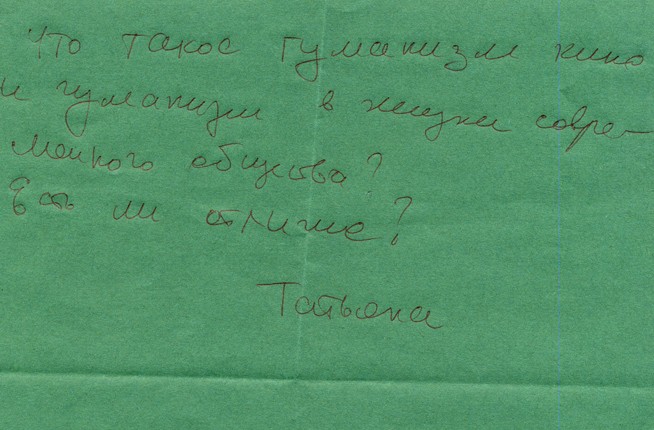 Что такое гуманизм кино
и гуманизм в жизни совре-
менного общества?
Есть ли отличие?
Татьяна